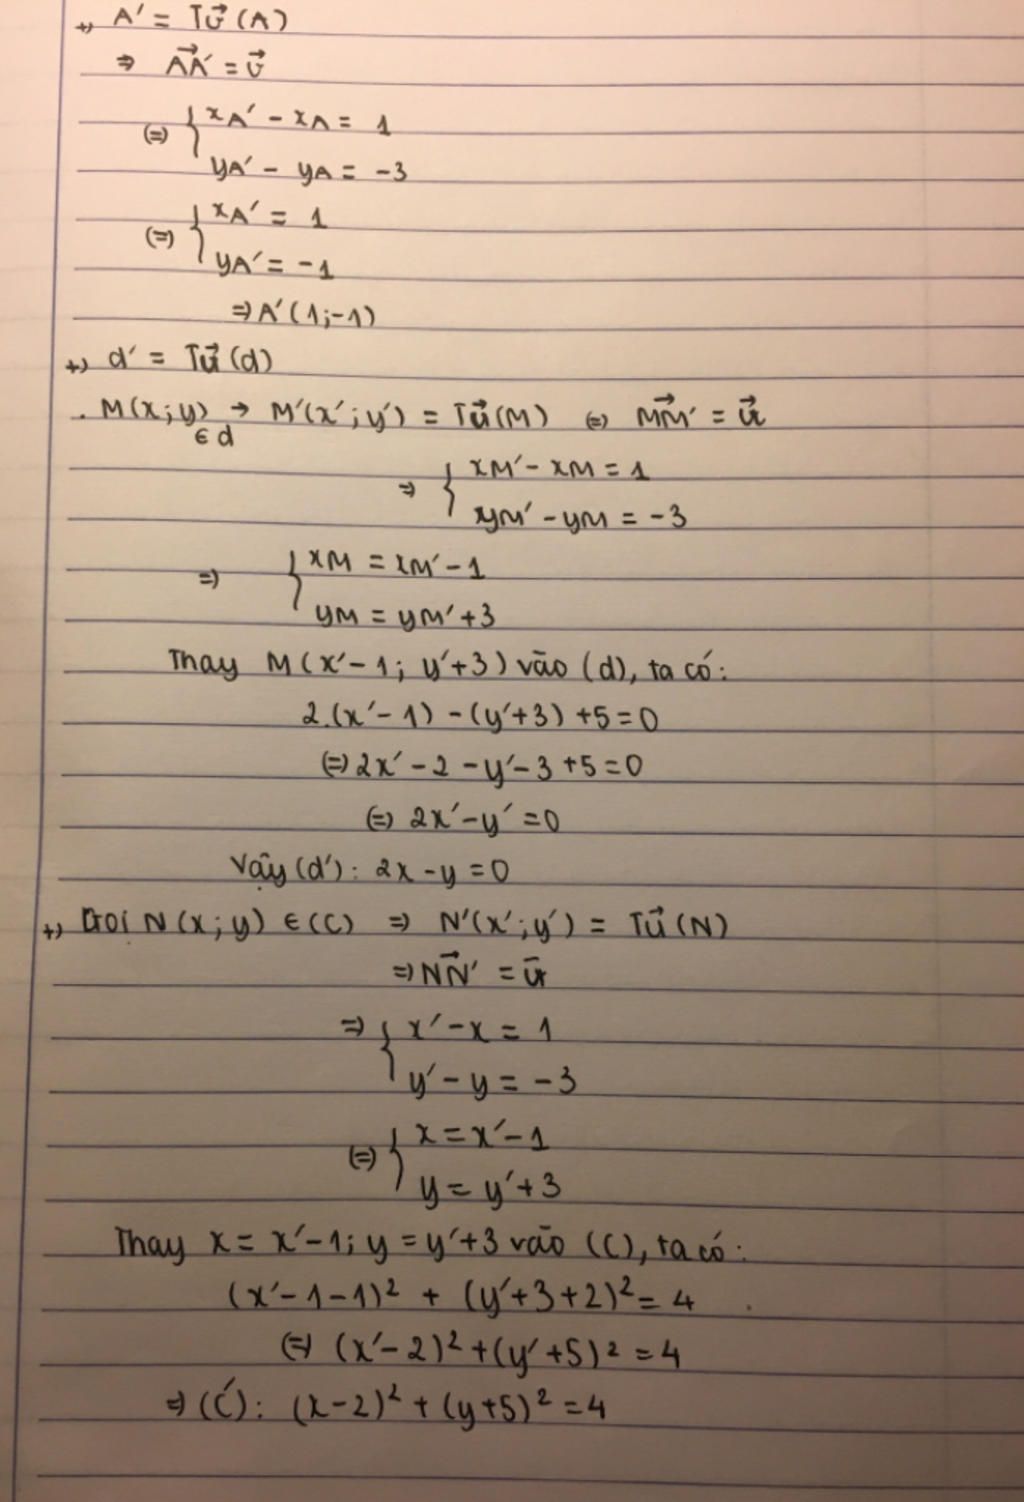 +) A' = Tv⃗ (A)
⇒ AA'⃗ = v⃗
(=) { xA' - xA = 1
yA' - yA = -3
(=) { xA' = 1
yA' = -1
⇒ A' (1;-1)
+) d' = Tu⃗ (d)
. M(x;y) → M'(x';y') = Tu⃗(M) (=) MM'⃗ = u⃗
∈ d
⇒ { xM' - xM = 1
yM' - yM = -3
⇒ { xM = xM' - 1
yM = yM' + 3
Thay M(x'-1; y'+3) vào (d), ta có:
2.(x'-1) - (y'+3) + 5 = 0
(=) 2x' - 2 - y' - 3 + 5 = 0
(=) 2x' - y' = 0
Vậy (d'): 2x - y = 0
+) Gọi N(x;y) ∈ (C) ⇒ N'(x';y') = Tu⃗ (N)
⇒ NN'⃗ = u⃗
⇒ { x' - x = 1
y' - y = -3
(=) { x = x' - 1
y = y' + 3
Thay x = x' - 1; y = y' + 3 vào (C), ta có:
(x' - 1 - 1)² + (y' + 3 + 2)² = 4
(=) (x' - 2)² + (y' + 5)² = 4
⇒ (C'): (x - 2)² + (y + 5)² = 4